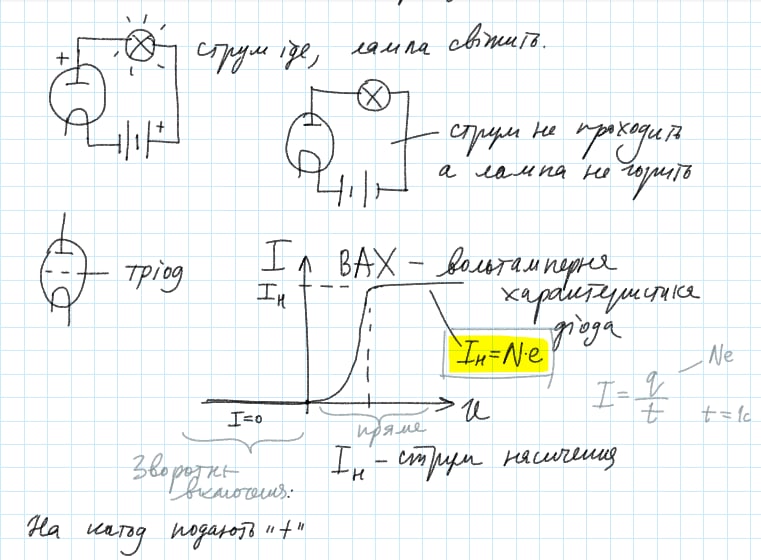 +
струм іде, лампа світить.
+
струм не проходить
а лампа не горить
тріод
I
ВАХ - вольтамперна
Iн
характеристика
діода
Iн = N·e
I = q/t
Ne
t = 1c
I=0
u
пряме
Зворотнє
включення:
Iн - струм насичення
На катод подають "+"